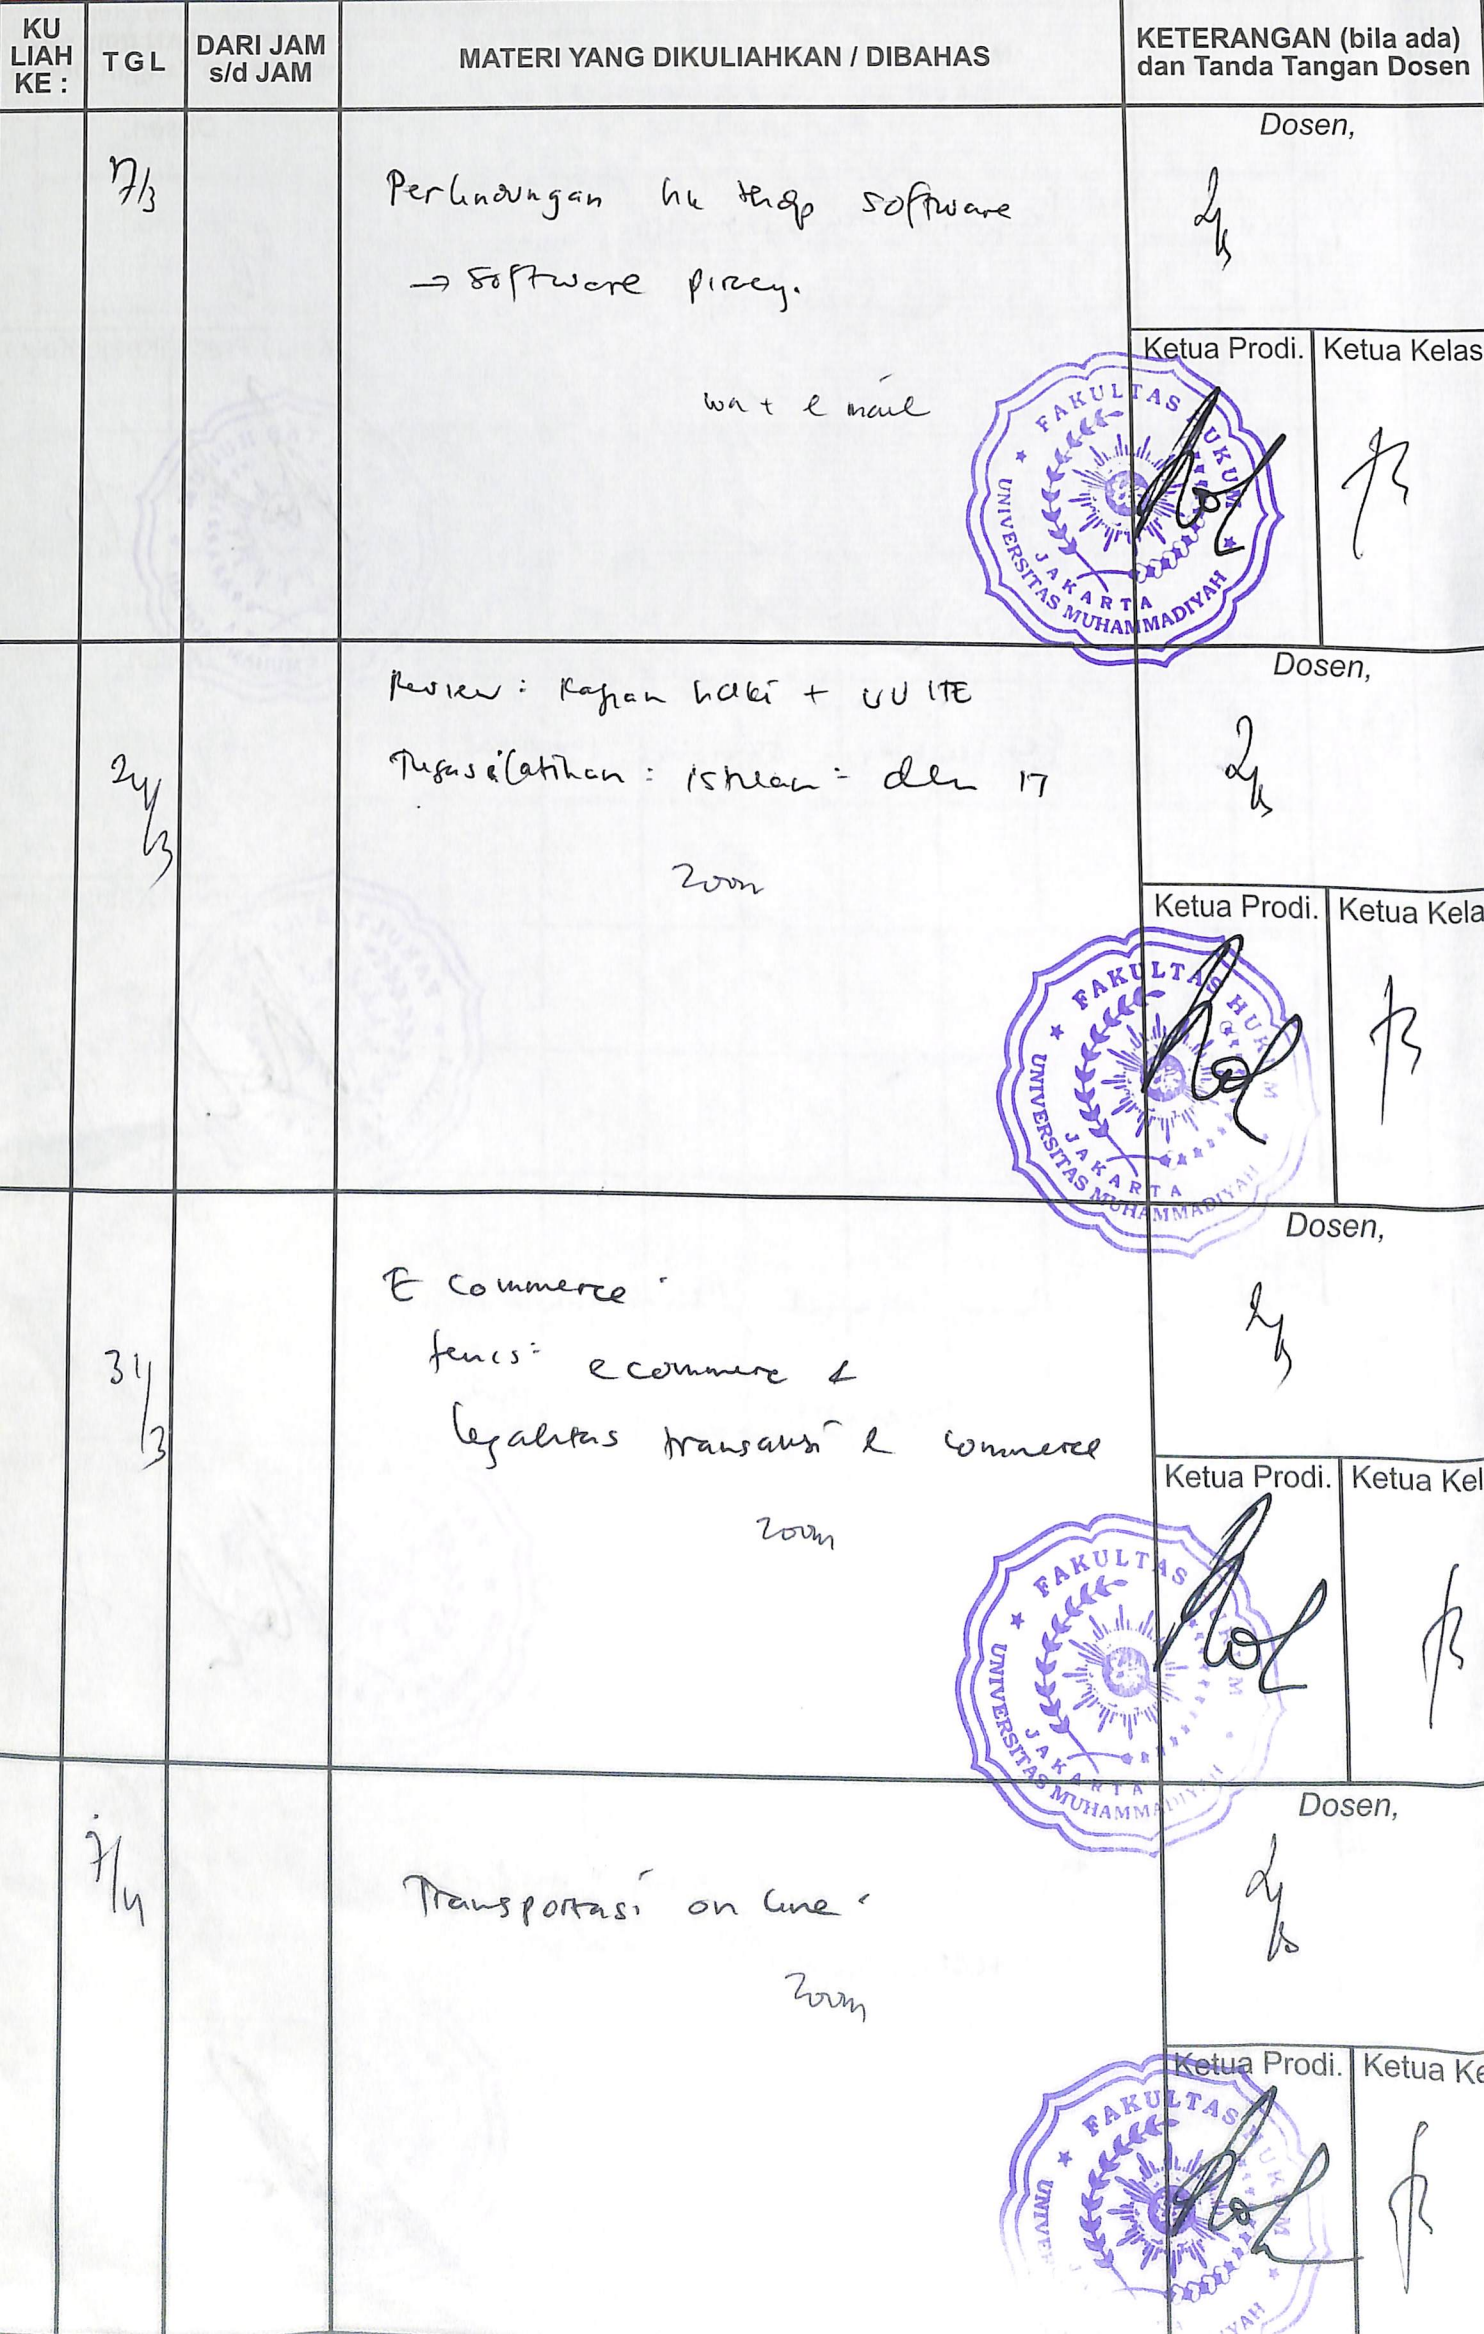 KU LIAH KE :
TGL
DARI JAM s/d JAM
MATERI YANG DIKULIAHKAN / DIBAHAS
KETERANGAN (bila ada) dan Tanda Tangan Dosen
Dosen,
17/3
Perlindungan hk thdp software
→ software piracy.
wa + e mail
Ketua Prodi.
Ketua Kelas
FAKULTAS HUKUM
JAKARTA
UNIVERSITAS MUHAMMADIYAH
Dosen,
24/3
Review : Kajian haki + UU ITE
Tugas latihan : =
Zoom
Ketua Prodi.
Ketua Kela
FAKULTAS HUKUM
JAKARTA
UNIVERSITAS MUHAMMADIYAH
Dosen,
31/3
E commerce
Jenis = e commerc &
legalitas transaksi e commerce
Zoom
Ketua Prodi.
Ketua Kel
FAKULTAS HUKUM
JAKARTA
UNIVERSITAS MUHAMMADIYAH
Dosen,
7/4
Transportasi on line
Zoom
Ketua Prodi.
Ketua Ke
FAKULTAS HUKUM
UNIVE
YAH